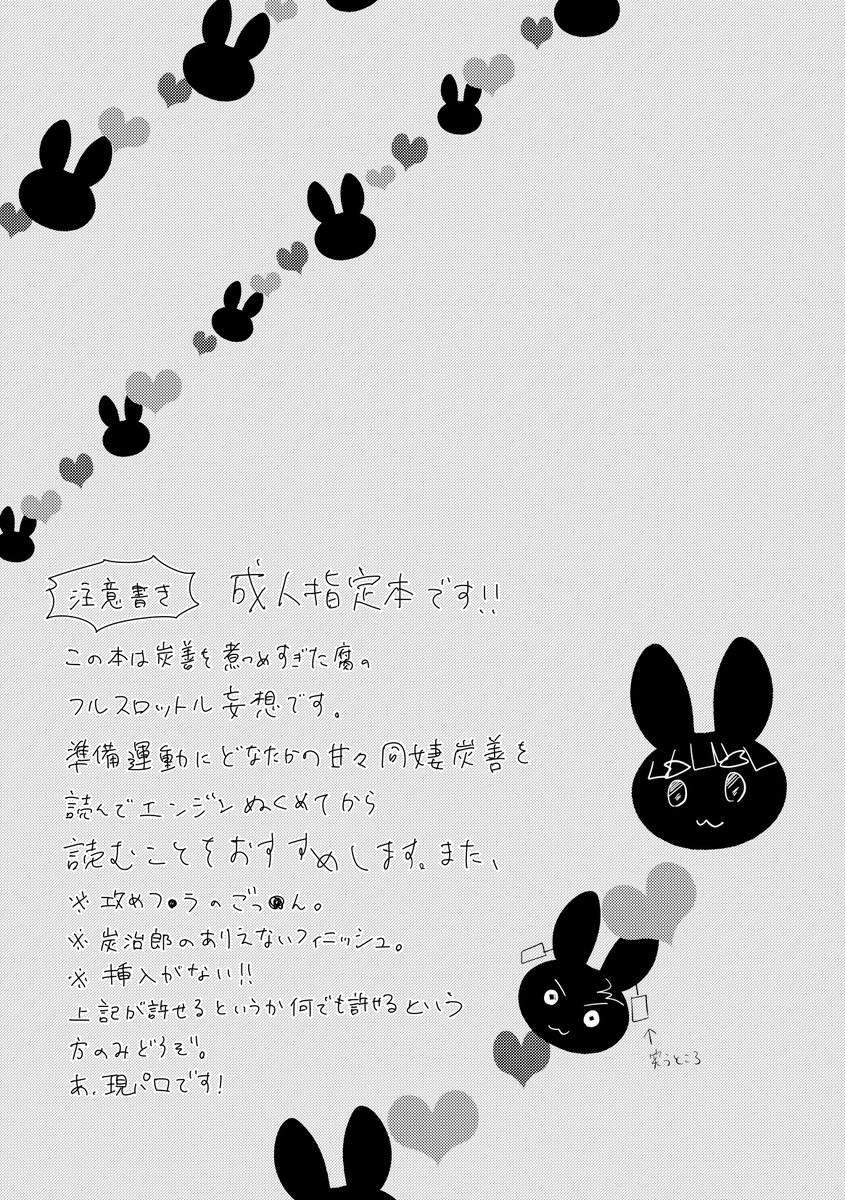 注意書き 成人指定本です!!
この本は炭善を煮つめすぎた腐の
フルスロットル妄想です。
準備運動にどなたかの甘々同妻炭善を
読んでエンジンぬくめてから
読むことをおすすめします。また、
※攻めフ●ラのごっ●ん。
※炭治郎のありえないフィニッシュ。
※挿入がない!!
上記が許せるというか何でも許せるという
方のみどうぞ。
あ、現パロです!
↑
笑うところ